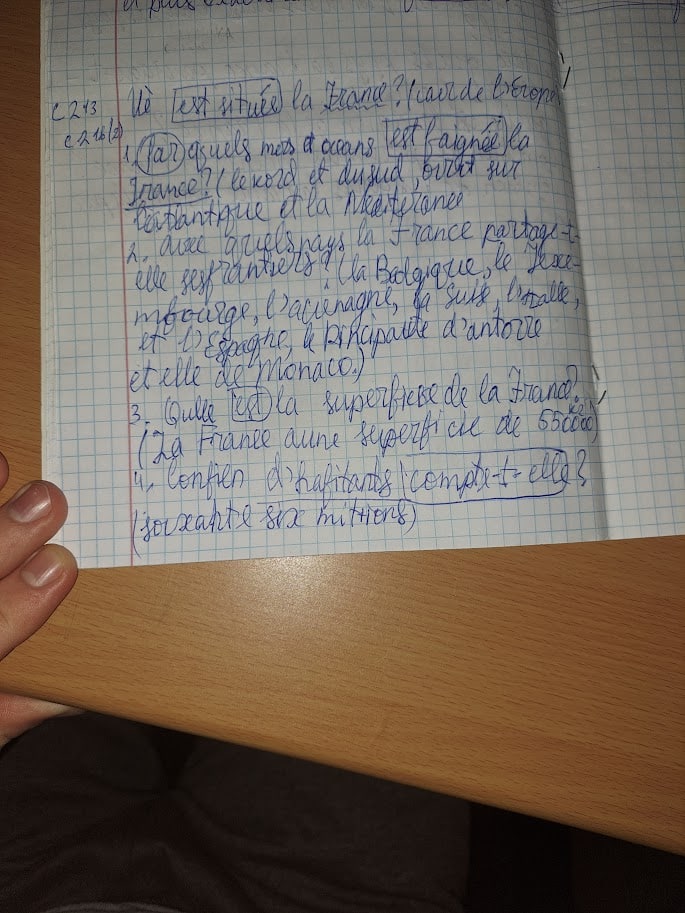 c 213 Uè est située la France? (cœur de l'Europe
c 216(2)
1. Par quels mers et océans est baignée la
France? (le nord et du sud, ouest sur
l'atlantique et la Méditerranée
2. avec quels pays la France partage-t-
elle ses frontiers? (la Belgique, le Luxe-
mbourge, l'aclemagne, la Suisse, l'Italie,
et l'Espagne, le Principauté d'antorre
et elle de Monaco.)
3. Qulle est la superficise de la France?
(La France a une superficie de 550000 k2)
4. Confien d'habitants compte-t-elle?
(soixante six millions)